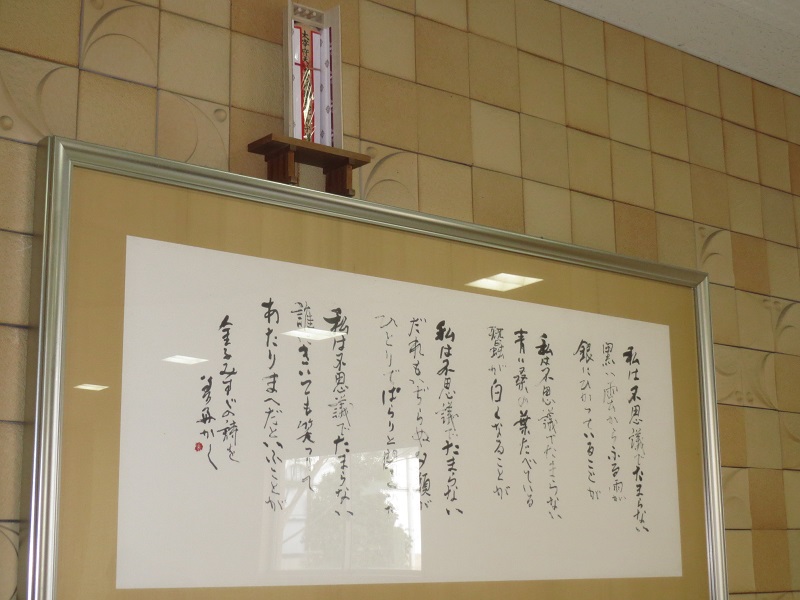 私は不思議でたまらない
黒い雲からふる雨が
銀にひかっていることが
私は不思議でたまらない
青い桑の葉たべている
蠶が白くなることが
私は不思議でたまらない
だれもいぢらぬ夕顔が
ひとりでぱらりと
私は不思議でたまらない
誰にきいても笑つてて
あたりまへだといふことが
金子みすゞの詩を